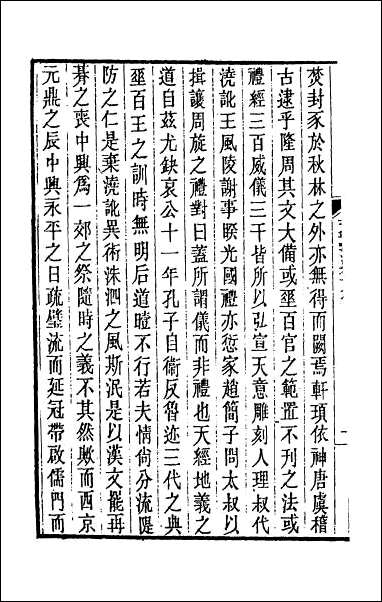 焚封豕於秋林之外亦無得而闕焉軒頊依神唐虞稽
古逮乎隆周其文大備或垂百官之範置不刊之法或
禮經三百威儀三千皆所以弘宣天意雕刻人理叔代
澆訛王風陵謝事睽光國禮亦愆家趙簡子問太叔以
揖讓周旋之禮對曰蓋所謂儀而非禮也天經地義之
道自茲尤缺哀公十一年孔子自衞反魯迹三代之典
垂百王之訓時無明后道噎不行若夫情尙分流隄
防之仁是棄澆訛異術洙泗之風斯泯是以漢文罷再
朞之喪中興爲一郊之祭隨時之義不其然歟而西京
元鼎之辰中興永平之日疏璧流而延冠帶啟儒門而